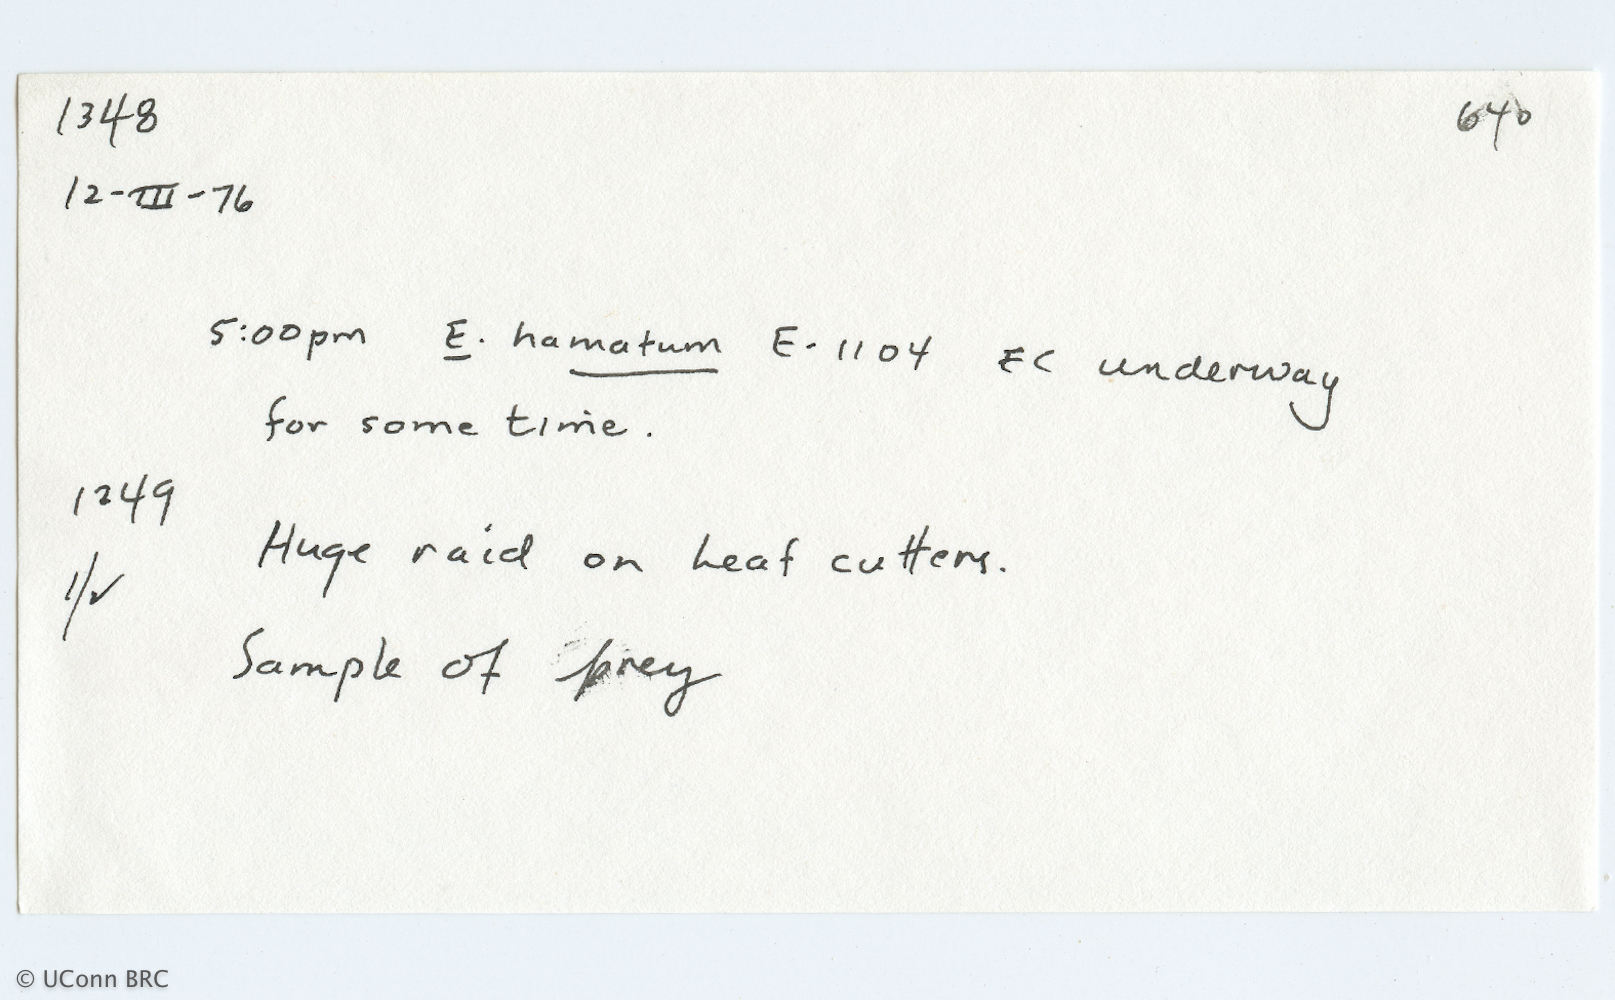 1348
640
12-III-76
5:00pm E. hamatum E-1104 EC underway
for some time.
1349
Huge raid on Leaf cutters.
1/✓
Sample of prey
© UConn BRC